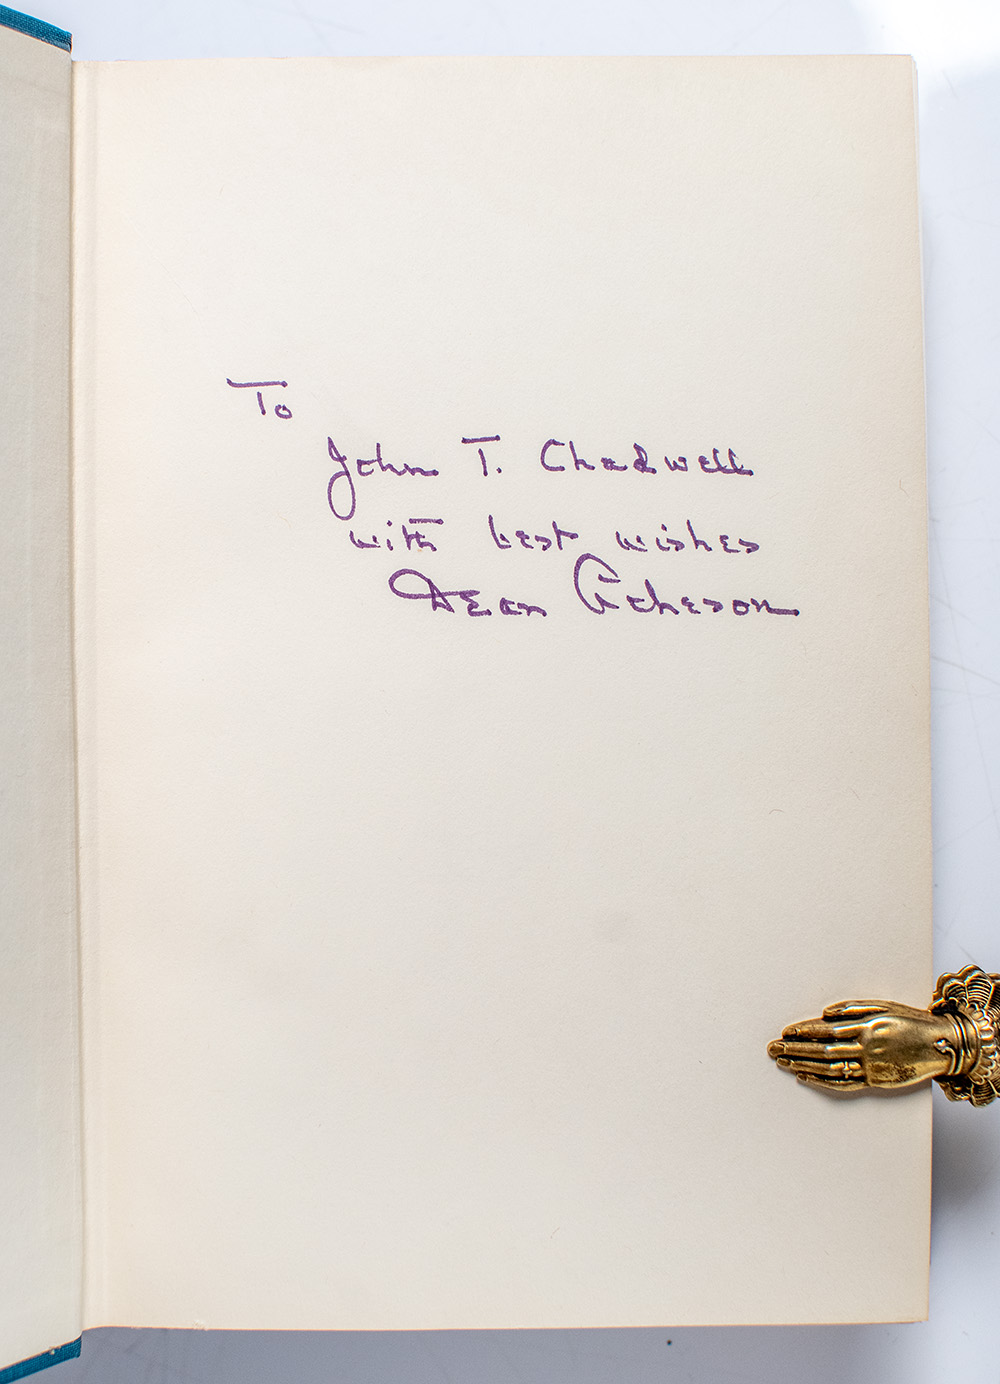 To
John T. Chadwell
with best wishes
Dean Acheson